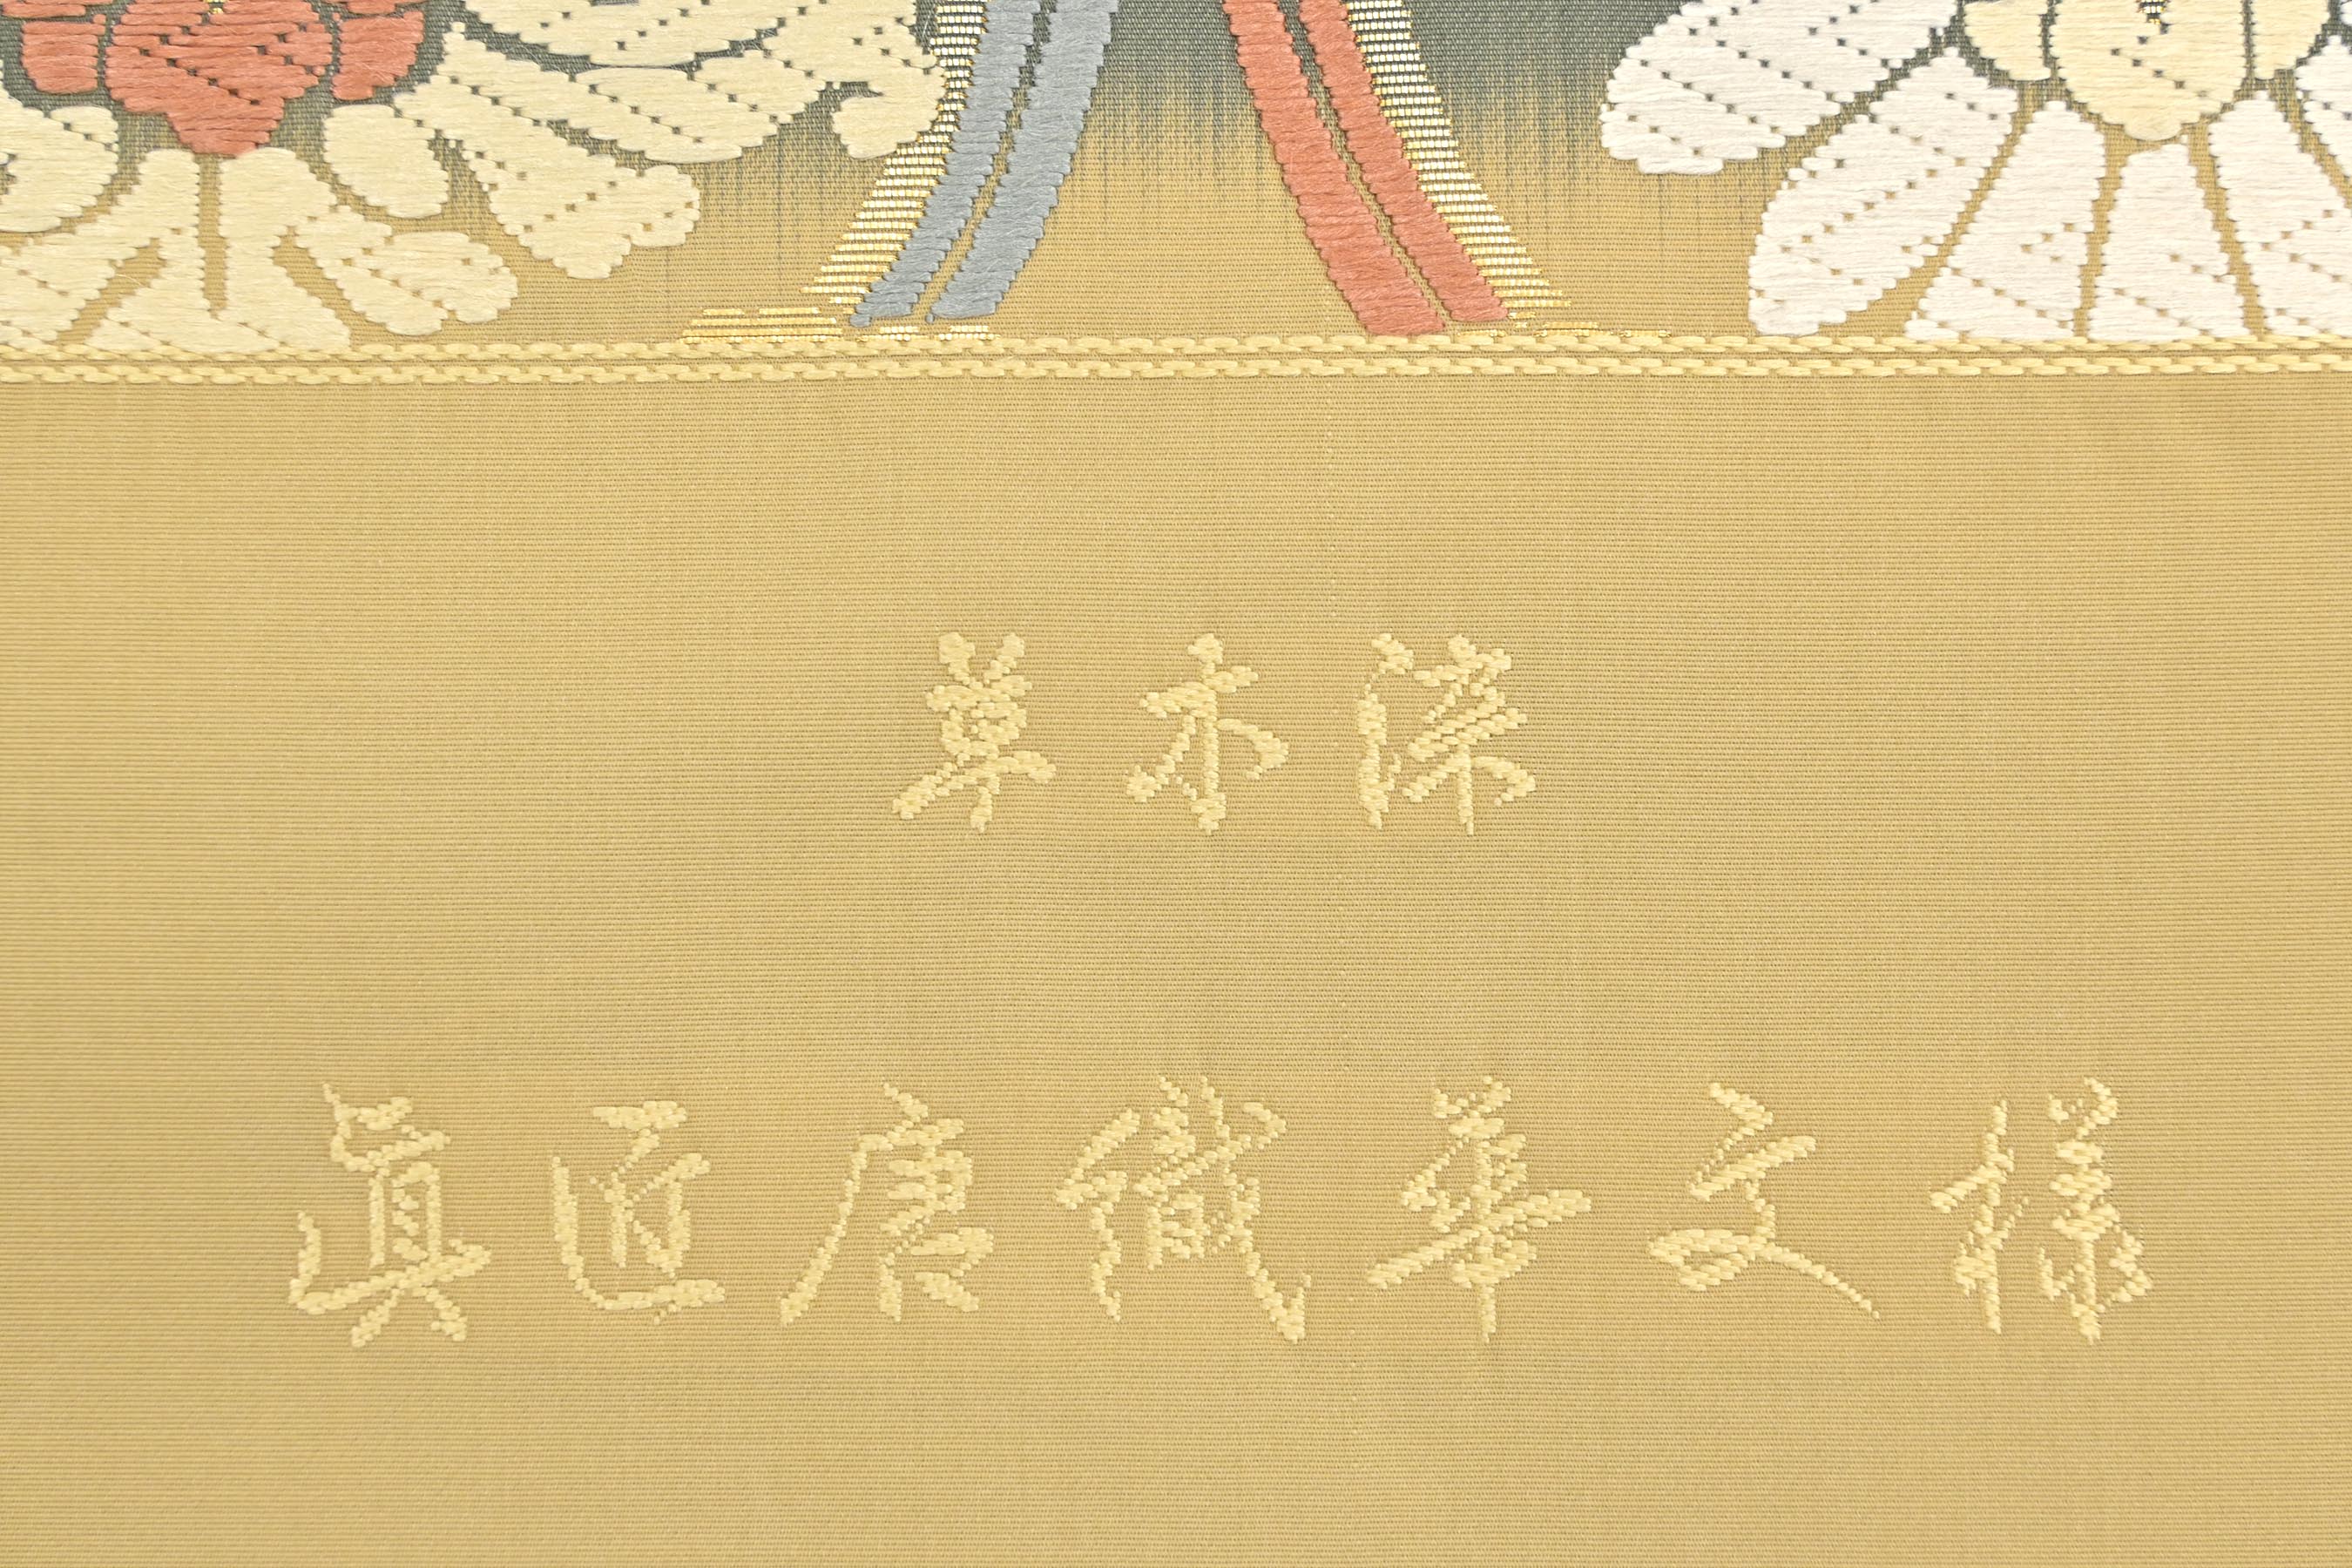 草木染
真匠唐織華文様